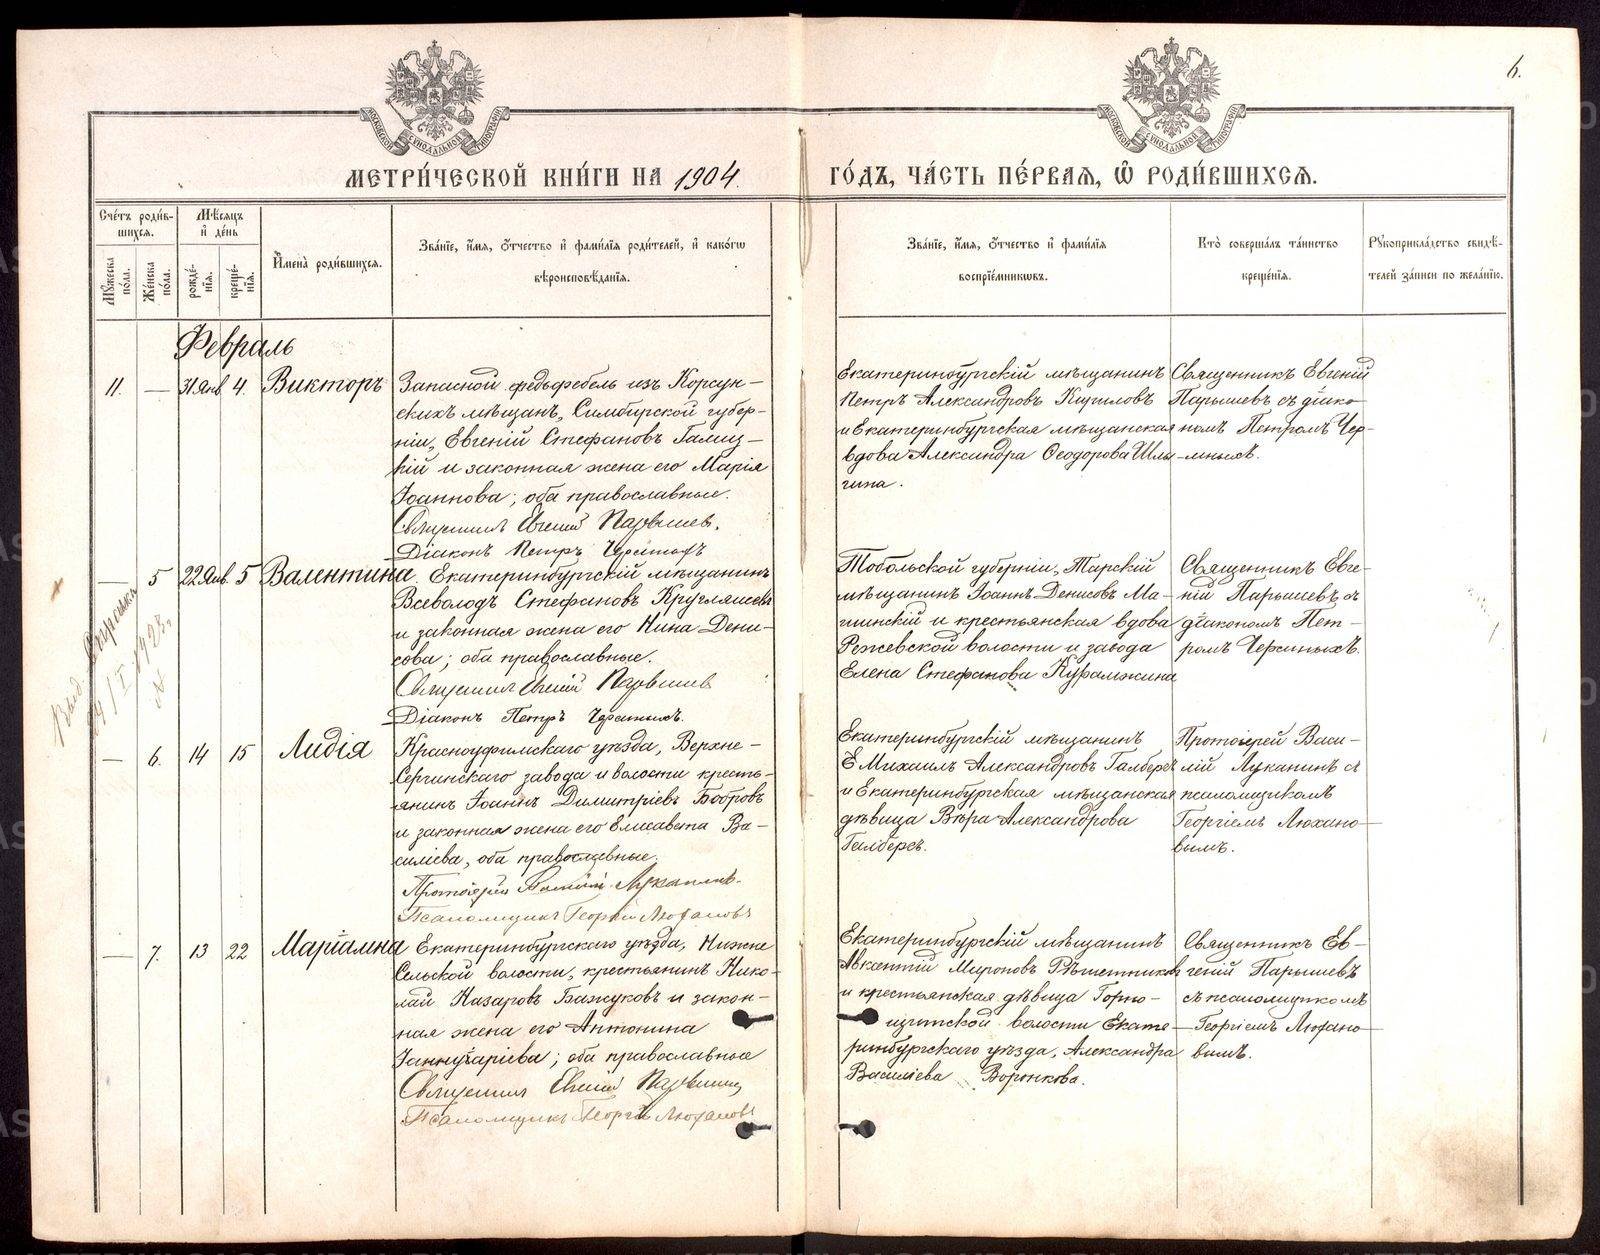 6.
МОСКОВСКОЙ СѴНОДАЛЬНОЙ ТИПОГРАФІИ
МОСКОВСКОЙ СѴНОДАЛЬНОЙ ТИПОГРАФІИ
МЕТРИ́ЧЕСКОЙ КНИ́ГИ НА 1904 ГО́ДЪ, ЧА́СТЬ ПЕ́РВАЯ, Ѽ РОДИ́ВШИХСЯ.
Сче́тъ роди́в-
шихся.
Мꙋжеска по́ла.
Же́нска по́ла.
Мѣ́сяцъ и҆ де́нь
рожде́-
нїя.
креще́-
нїя.
И҆мена̀ роди́вшихся.
Зва́нїе, и҆́мя, ѻ҆́тчество и҆ фами́лїя роди́телей, и҆ како́гѡ
вѣроисповѣ́данїя.
Зва́нїе, и҆́мя, ѻ҆́тчество и҆ фами́лїя
воспрїе́мниковъ.
Кто̀ соверша́лъ та́инство
креще́нїя.
Рꙋкоприкла́дство свидѣ́-
телей за́писи по жела́нїю.
Февраль
11. — 31 Янв 4. Викторъ
Запасной фельдфебель изъ Корсун-
скихъ мѣщанъ, Симбирской губер-
ніи, Евгеній Стефановъ Галиц-
кій и законная жена его Марія
Іоаннова; оба православные.
Священникъ Евгеній Парышев.
Діаконъ Петръ
Екатеринбургскій мѣщанинъ
Петръ Александровъ Кириловъ
и Екатеринбургская мѣщанская
вдова Александра Ѳеодорова Шлы-
гина.
Священникъ Евгеній
Парышевъ съ діако-
номъ Петромъ Чер-
— 5 22 Янв. 5 Валентина.
Екатеринбургскій мѣщанинъ
Всеволодъ Стефановъ
и законная жена его Нина Дени-
сова; оба православные.
Священникъ Евгеній Парышевъ
Діаконъ Петръ
Тобольской губерніи, Тарскій
мѣщанинъ Іоаннъ Денисовъ
и крестьянская вдова
Режевской волости и завода
Елена Стефанова
Священникъ Евге-
ній Парышевъ съ
діакономъ Пет-
ромъ
1923
— 6. 14 15 Лидія
Красноуфимскаго уѣзда, Верхне-
Сергинскаго завода и волости кресть-
янинъ Іоаннъ Димитріевъ Бобровъ
и законная жена его Елисавета Ва-
силіева, оба православные.
Протоіерей Василій Луканинъ.
Псаломщикъ Георгій Люхановъ
Екатеринбургскій мѣщанинъ
Михаилъ Александровъ
и Екатеринбургская мѣщанская
дѣвица Вѣра Александрова
Протоіерей Васи-
лій Луканинъ съ
псаломщикомъ
Георгіемъ Люхано-
вымъ.
— 7. 13 22 Маріамна
Екатеринбургскаго уѣзда, Нижне
Сельской волости, крестьянинъ Нико-
лай Назаровъ Бажуковъ и закон-
ная жена его Антонина
Іаннуаріева; оба православные
Священникъ Евгеній Парышевъ
Псаломщикъ Георгій Люхановъ
Екатеринбургскій мѣщанинъ
Авксентій Мироновъ Рѣшетниковъ
и крестьянская дѣвица Горно-
щитской волости Екате-
ринбургскаго уѣзда, Александра
Василіева Воронкова.
Священникъ Ев-
геній Парышевъ
съ псаломщикомъ
Георгіемъ Люхано-
вымъ.